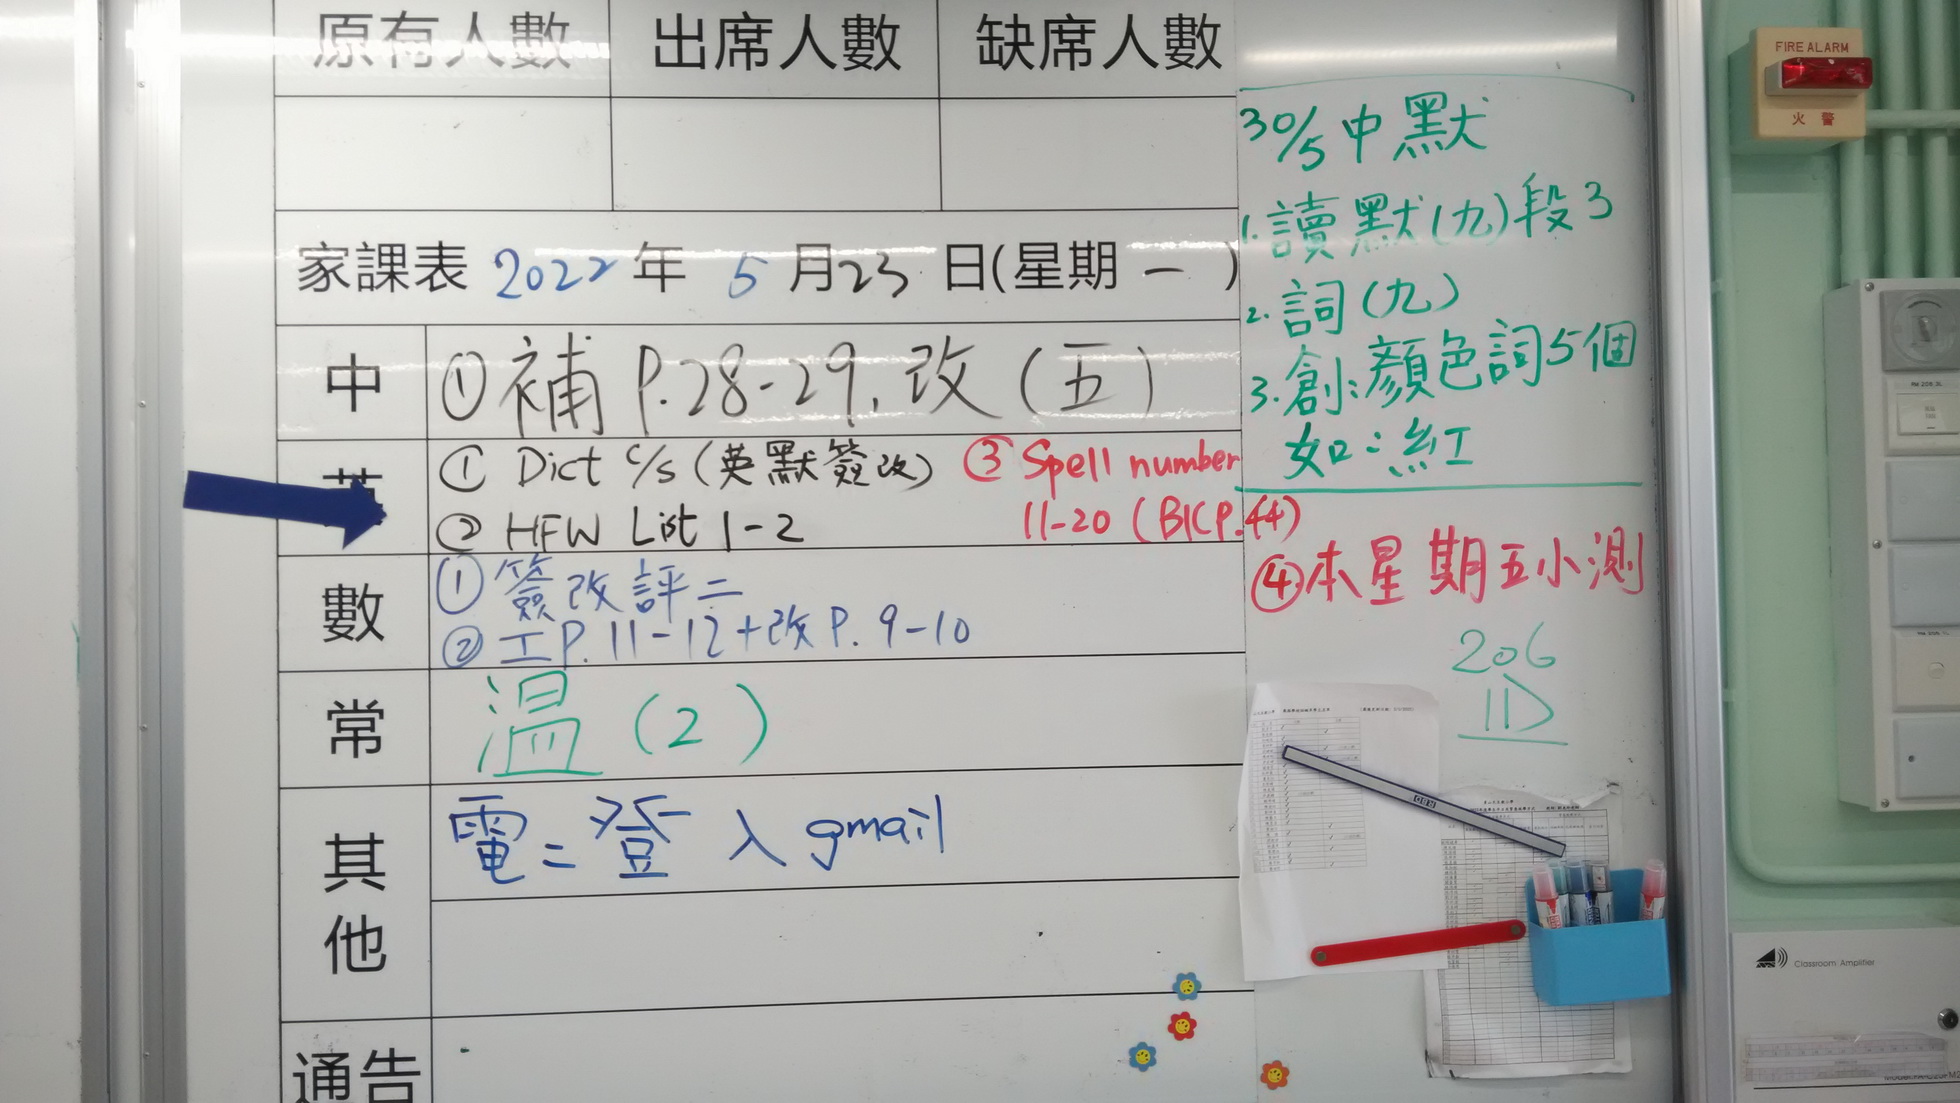 原有人數 出席人數 缺席人數
家課表 2022 年 5 月 23 日(星期 一 )
中 ① 補 P.28-29, 改 (五)
① Dict c/s (英默簽改) ③ Spell number
② HFW List 1-2 11-20 (BKP.44)
數 ① 簽改評二
② 工P. 11-12+改P. 9-10
常 溫 (2)
其他 電= 登入 gmail
通告
30/5 中默
1. 讀默(九)段3
2. 詞(九)
3. 創:顏色詞5個
如:紅
④ 本星期五小測
206
1D
FIRE ALARM
火 警
Classroom Amplifier